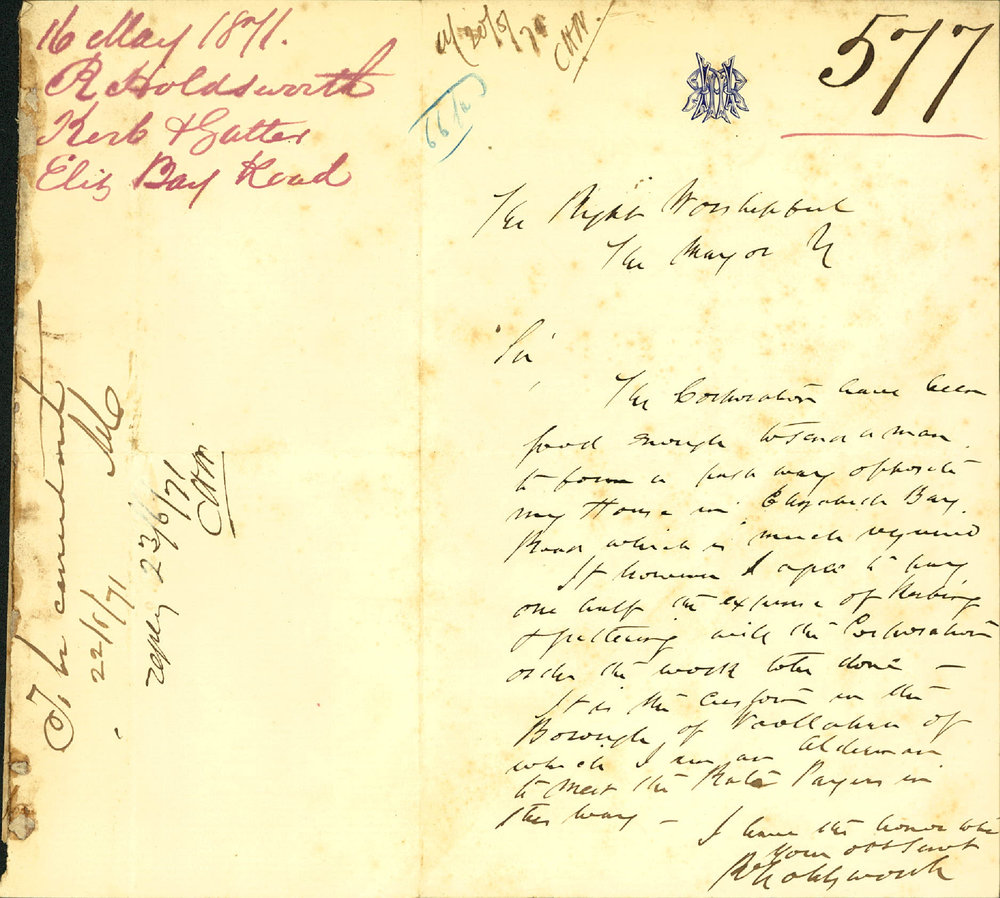 16 May 1871.
R Holdsworth
Kerb & Gutter
Eliz Bay Road
20/5/71
66/2
577
The Right Worshipful
The Mayor
Sir
The Corporation have been
good enough to send a man
to form a path way opposite
my House in Elizabeth Bay
Road which is much required
If however I agree to pay
one half the expense of Kerbing
& guttering will the Corporation
order the work to be done —
It is the custom in the
Borough of Woollahra of
which I am an Alderman
to meet the Rate Payers in
this way —
I have the honor to be
Your obt Servt
R Holdsworth
To be carried out
22/5/71
reply 23/6/71